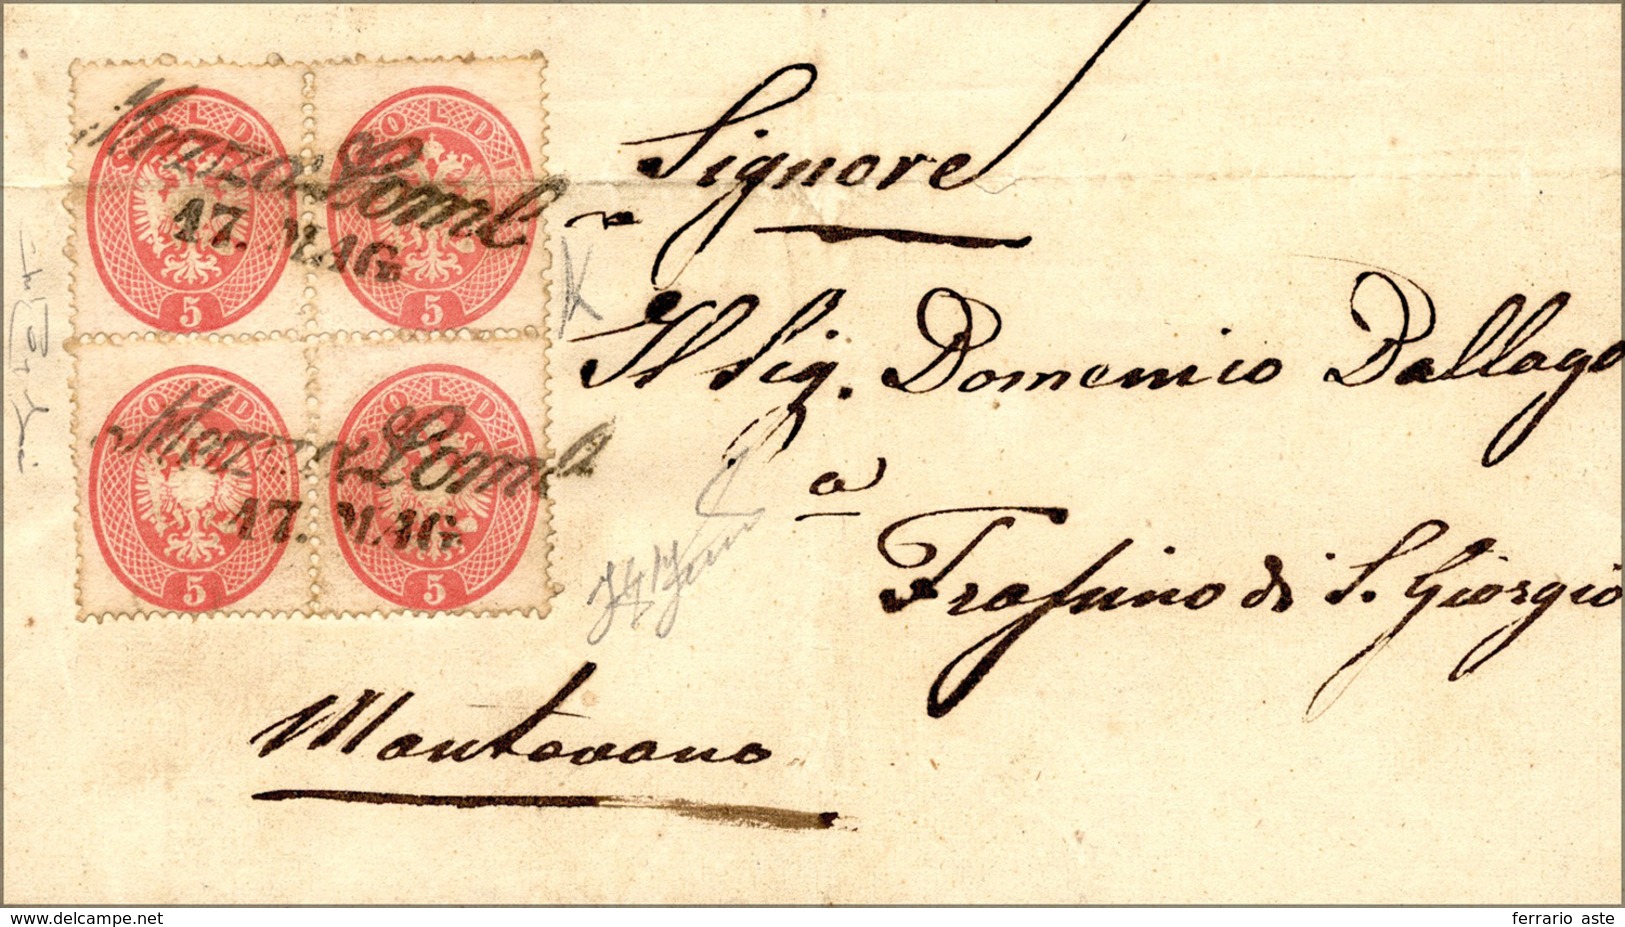 SOLDI
SOLDI
Mezzo Lomb
17. MAG.
5
5
SOLDI
SOLDI
Mezzo Lomb
17. MAG.
5
5
Signore
Il Sig. Domenico Dallago
a
Frassino di S. Giorgio
Mantovano
www.delcampe.net
ferrario aste